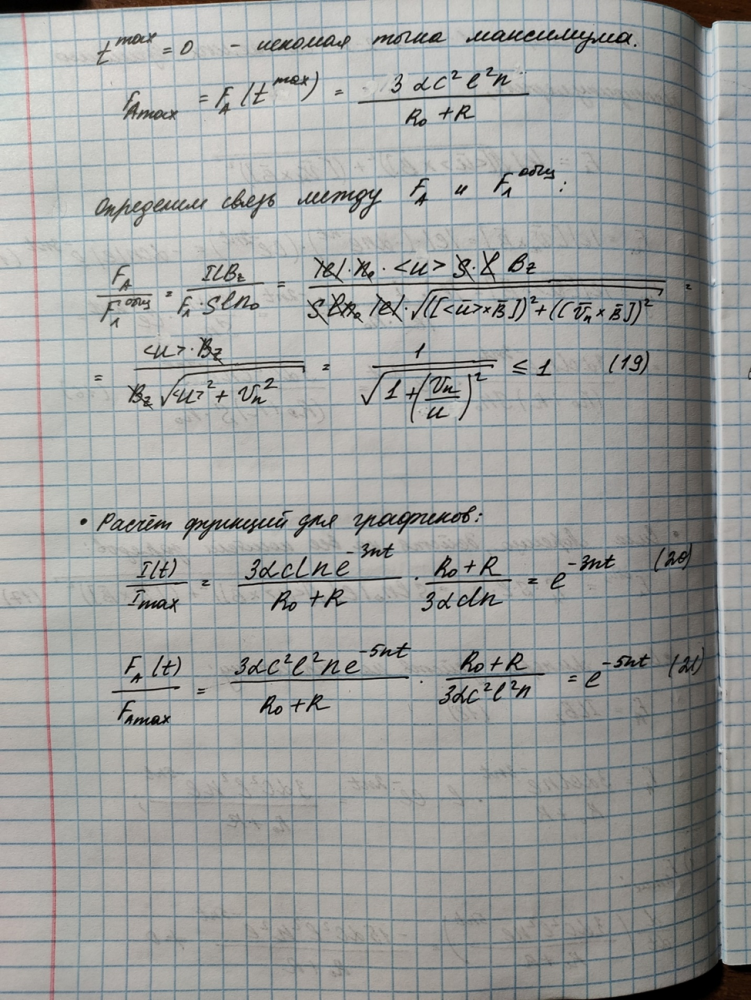 t^max = 0 - искомая точка максимума.
F_Amax = F_A (t^max) = 3αc²l²n / (R₀ + R)
Определим связь между F_A и F_Л^общ:
F_A / F_Л^общ = IlB_z / (F_Л · Sln₀) = |e| · n₀ · <u> S · l B_z / (Sln₀ |e| · √(([<u> × B̄])² + ([v̄_n × B̄])²)) =
= <u> · B_z / (B_z √(<u>² + v_n²)) = 1 / √(1 + (v_n / u)²) ≤ 1 (19)
• Расчёт функций для графиков:
I(t) / I_max = 3αcln e^(-3nt) / (R₀ + R) · (R₀ + R) / 3αcln = e^(-3nt) (20)
F_A (t) / F_Amax = 3αc²l²n e^(-5nt) / (R₀ + R) · (R₀ + R) / 3αc²l²n = e^(-5nt) (21)